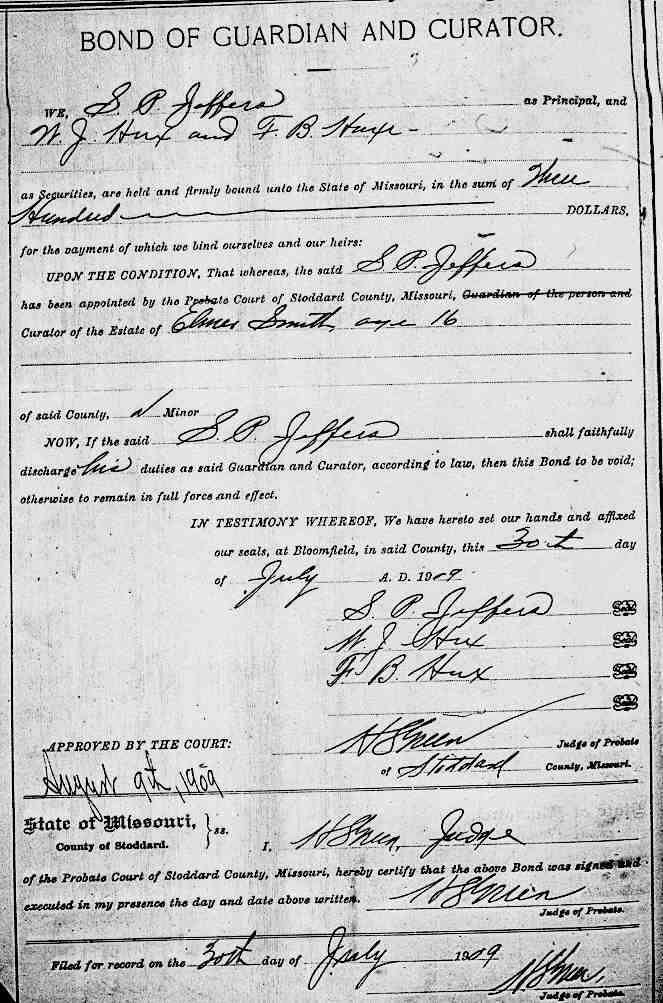 BOND OF GUARDIAN AND CURATOR.
WE, S. P. Jeffers as Principal, and
W. J. Hux and F. B. Hux
as Securities, are held and firmly bound unto the State of Missouri, in the sum of Three
Hundred DOLLARS,
for the payment of which we bind ourselves and our heirs:
UPON THE CONDITION, That whereas, the said S. P. Jeffers
has been appointed by the Probate Court of Stoddard County, Missouri, Guardian of the person and
Curator of the Estate of Elmer Smith, age 16
of said County, Minor
NOW, If the said S. P. Jeffers shall faithfully
discharge his duties as said Guardian and Curator, according to law, then this Bond to be void;
otherwise to remain in full force and effect.
IN TESTIMONY WHEREOF, We have hereto set our hands and affixed
our seals, at Bloomfield, in said County, this 30th day
of July A. D. 1909
S. P. Jeffers Seal
W. J. Hux Seal
F. B. Hux Seal
Seal
APPROVED BY THE COURT: Green Judge of Probate
of Stoddard County, Missouri.
August 9th, 1909
State of Missouri, } ss.
County of Stoddard. I, Green, Judge
of the Probate Court of Stoddard County, Missouri, hereby certify that the above Bond was signed and
executed in my presence the day and date above written. Green
Judge of Probate.
Filed for record on the 30th day of July 1909
Green
Judge of Probate.